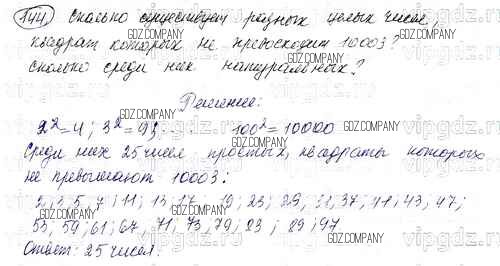 144. Сколько существует разных целых чисел,
квадрат которых не превосходит 10003?
Сколько среди них натуральных?
Решение:
2²=4; 3²=9; 100²=10000
Среди них 25 чисел простых, квадраты которых
не превышают 10003:
2, 3, 5, 7, 11, 13, 17, 19; 23; 29, 37; 41; 43, 47;
53; 59; 61; 67; 71; 73; 79; 23; 29; 97
Ответ: 25 чисел.
GDZ.COMPANY
vipgdz.ru